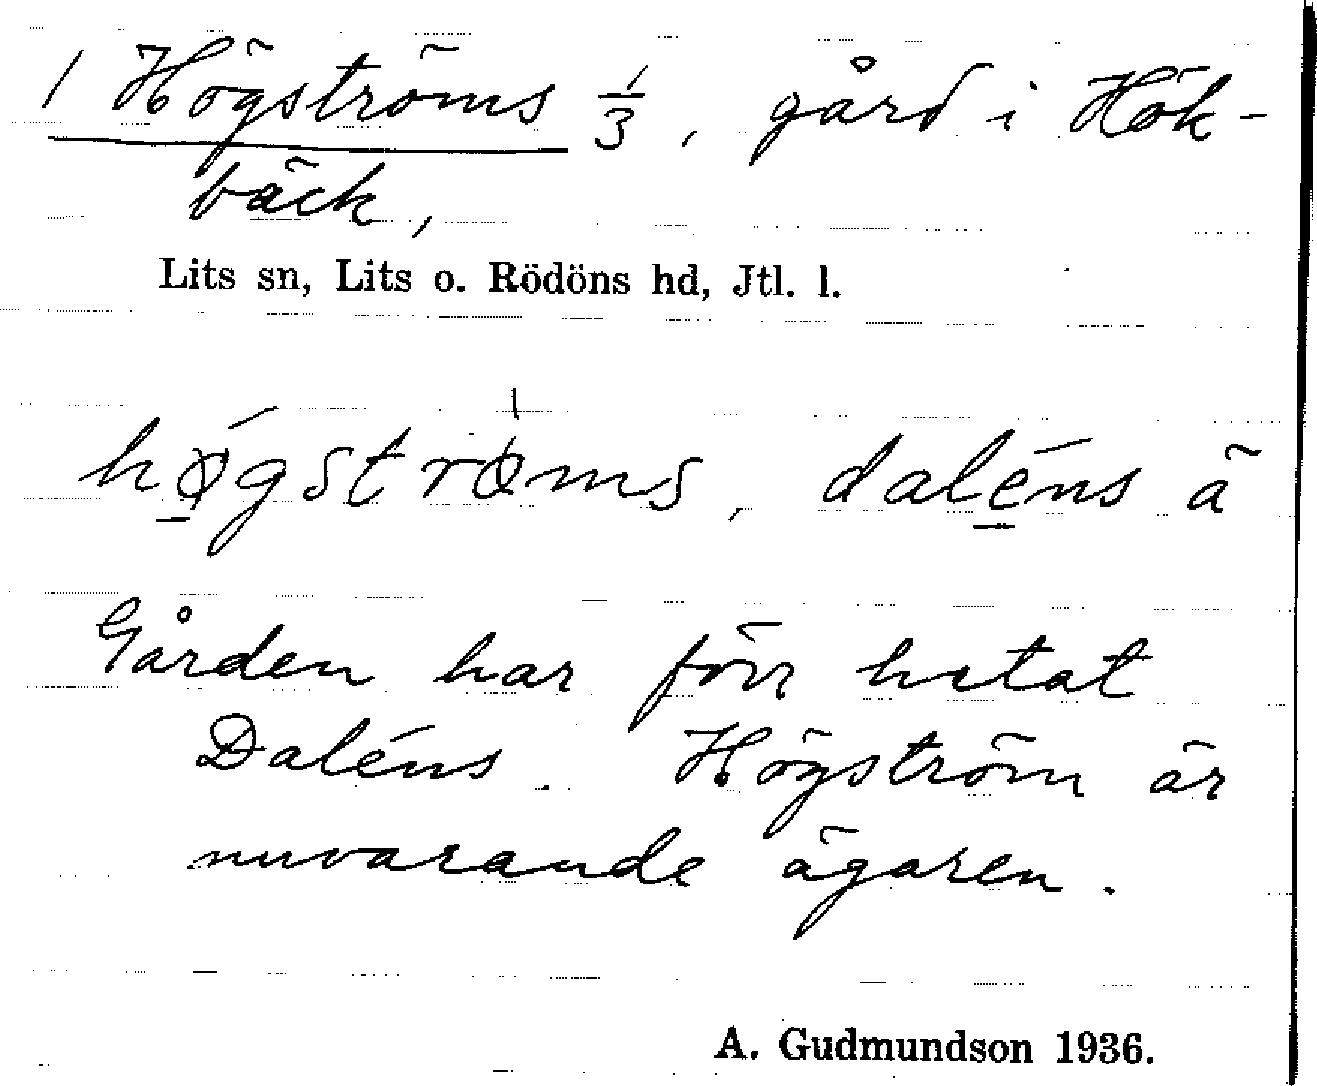 1 Högströms 1/3, gård i Hök-
bäck,
Lits sn, Lits o. Rödöns hd, Jtl. l.
hǿ̱gstrøms, dalé̱ns ä
Gården har förr hetat
Daléns. Högström är
nuvarande ägaren.
A. Gudmundson 1936.